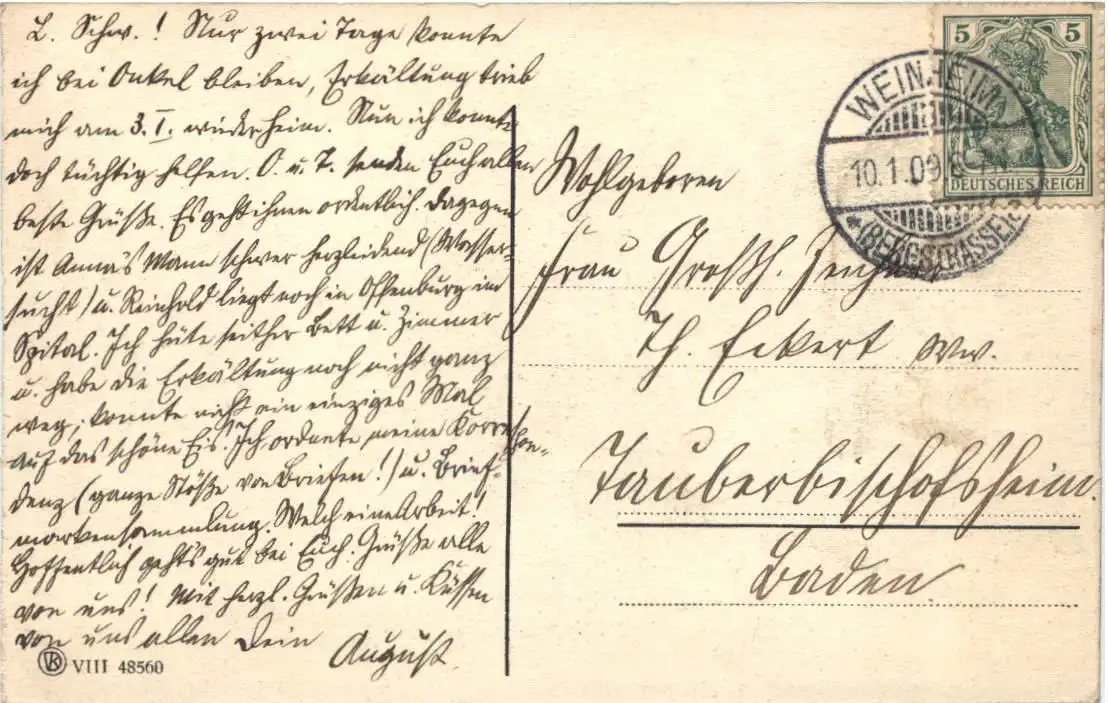 L. Schw.! Nur zwei Tage konnte
ich bei Onkel bleiben, Erkältung trieb
mich am 3. I. wieder heim. Nun ich konnte
doch tüchtig helfen. O. u. T. senden Euch allen
beste Grüße. Es geht ihnen ordentlich. Dagegen
ist Anna's Mann schwer herzleidend (Wasser-
sucht) u. Reinhold liegt noch in Offenburg im
Spital. Ich hüte seither Bett u. Zimmer
u. habe die Erkältung noch nicht ganz
weg; konnte nicht ein einziges Mal
auf das schöne Eis. Ich ordnete meine Korrespon-
denz (ganze Stöße von Briefen!) u. Brief-
markensammlung. Welch eine Arbeit!
Hoffentlich geht's gut bei Euch. Grüße alle
von uns! Mit herzl. Grüßen u. Küssen
von uns allen Dein
August.
VK VIII 48560
5 5
DEUTSCHES REICH
WEINHEIM
10.1.09
* (BERGSTRASSE)
Wohlgeboren
Frau Großh.
Th. Eckert Ww.
Tauberbischofsheim.
Baden